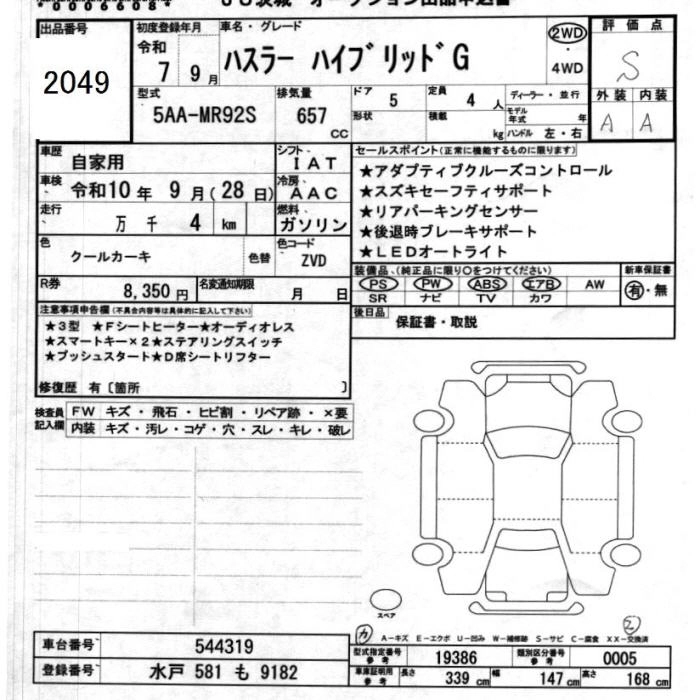 出品番号
2049
初度登録年月
令和
7 9月
車名・グレード
ハスラー ハイブリッドG
2WD
・
4WD
評価点
S
外装 内装
A A
型式
5AA-MR92S
排気量
657
cc
ドア
5
定員
4 人
形状
積載
kg
ディーラー・並行
モデル年式
年
ハンドル 左・右
車歴
自家用
シフト
IAT
車検
令和10年 9月(28日)
冷房
AAC
走行
万 千 4 km
燃料
ガソリン
色
クールカーキ
色替
色コード
ZVD
R券
8,350円
名変通知期限
月 日
セールスポイント(正常に機能するものに限ります)
★アダプティブクルーズコントロール
★スズキセーフティサポート
★リアパーキングセンサー
★後退時ブレーキサポート
★LEDオートライト
装備品、(純正品に限り○をつけてください)
PS PW ABS エアB AW
SR ナビ TV カワ
新車保証書
有・無
後日品
保証書・取説
注意事項申告欄(不具合内容等は具体的に記入して下さい)
★3型 ★Fシートヒーター★オーディオレス
★スマートキー×2★ステアリングスイッチ
★プッシュスタート★D席シートリフター
修復歴 有〔箇所 〕
検査員記入欄
FW キズ・飛石・ヒビ割・リペア跡・×要
内装 キズ・汚レ・コゲ・穴・スレ・キレ・破レ
スペア
A−キズ E−エクボ U−凹み W−補修跡 S−サビ C−腐食 XX−交換済
車台番号
544319
登録番号
水戸 581 も 9182
型式指定番号
参考
19386
類別区分番号
参考
0005
車庫証明用
参考
長さ
339 cm
幅
147 cm
高さ
168 cm